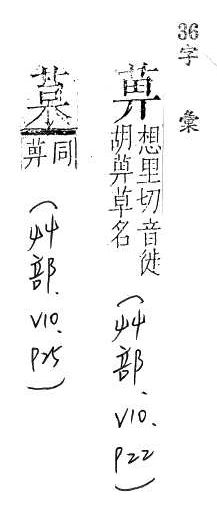 36字彙
想里切音徙
胡草名
(艸部.V10.P22)
同
(艸部.V10.P25)